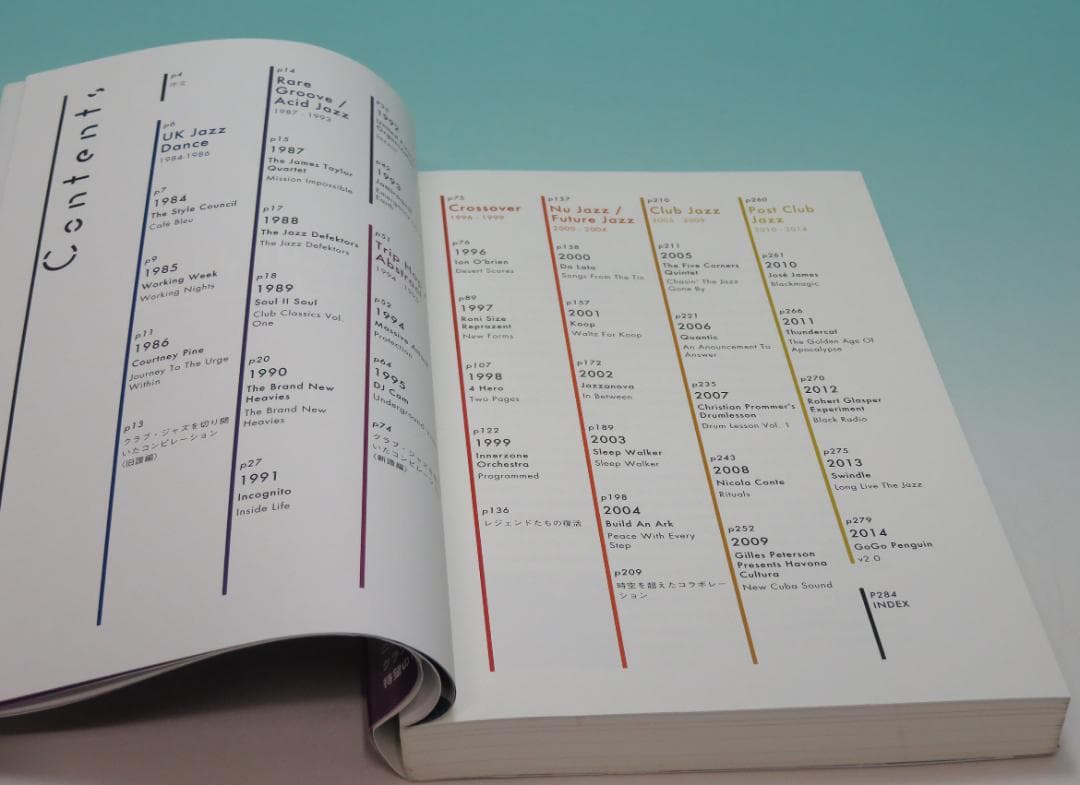 Contents
p4
序文
p6
UK Jazz
Dance
1984-1986
p7
1984
The Style Council
Café Bleu
p9
1985
Working Week
Working Nights
p11
1986
Courtney Pine
Journey To The Urge
Within
p13
クラブ・ジャズを切り開
いたコンピレーション
(旧譜編)
p14
Rare
Groove /
Acid Jazz
1987 - 1993
p15
1987
The James Taylor
Quartet
Mission Impossible
p17
1988
The Jazz Defektors
The Jazz Defektors
p18
1989
Soul II Soul
Club Classics Vol.
One
p20
1990
The Brand New
Heavies
The Brand New
Heavies
p27
1991
Incognito
Inside Life
1992
1993
p51
Trip Hop
Abstract
p52
1994
Massive
Protection
p64
1995
DJ Cam
Underground
p74
クラブ・ジャズ
いたコンピレーション
(新譜編)
p75
Crossover
1996 - 1999
p76
1996
Ian O'brien
Desert Scores
p89
1997
Roni Size
Reprazent
New Forms
p107
1998
4 Hero
Two Pages
p122
1999
Innerzone
Orchestra
Programmed
p136
レジェンドたちの復活
p137
Nu Jazz /
Future Jazz
2000 - 2004
p138
2000
Da Lata
Songs From The Tin
p157
2001
Koop
Waltz For Koop
p172
2002
Jazzanova
In Between
p189
2003
Sleep Walker
Sleep Walker
p198
2004
Build An Ark
Peace With Every
Step
p209
時空を超えたコラボレー
ション
p210
Club Jazz
2005 - 2009
p211
2005
The Five Corners
Quintet
Chasin' The Jazz
Gone By
p221
2006
Quantic
An Anouncement To
Answer
p235
2007
Christian Prommer's
Drumlesson
Drum Lesson Vol. 1
p243
2008
Nicola Conte
Rituals
p252
2009
Gilles Peterson
Presents Havana
Cultura
New Cuba Sound
p260
Post Club
Jazz
2010 - 2014
p261
2010
José James
Blackmagic
p266
2011
Thundercat
The Golden Age Of
Apocalypse
p270
2012
Robert Glasper
Experiment
Black Radio
p275
2013
Swindle
Long Live The Jazz
p279
2014
GoGo Penguin
v2.0
P284
INDEX
待望の